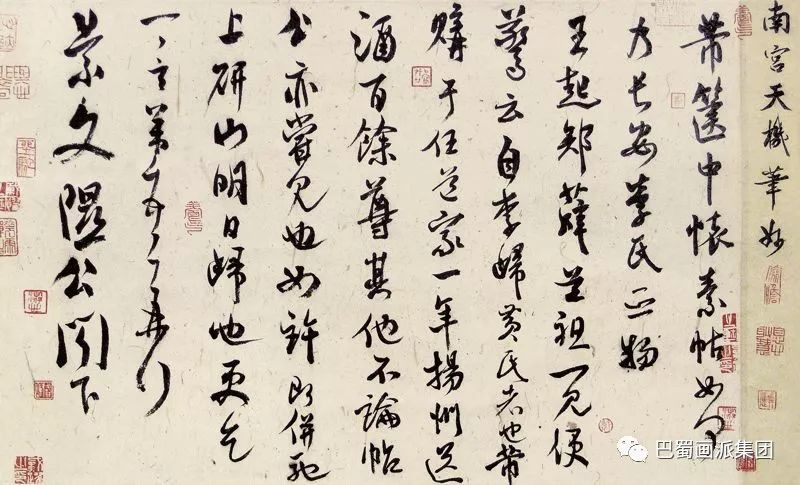 南宮天機筆妙
芾篋中懷素帖如何
乃長安李氏之物
王起鄭薛道祖一見便
驚云自李歸黃氏者也芾
購于任道家一年揚州送
酒百餘尊其他不論帖
公亦嘗見也如許即併馳
上研山明日歸也更乞
一言芾頓首再行
景文隰公閤下
巴蜀画派集团